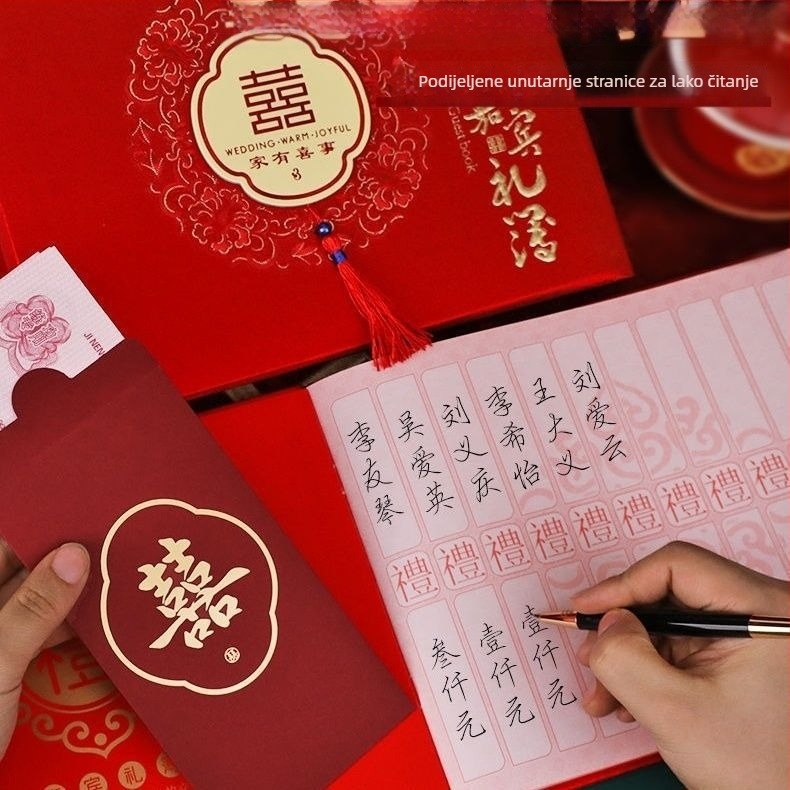 Podijeljene unutarnje stranice za lako čitanje
囍
WEDDING·WARM·JOYFUL
家有喜事
嘉宾礼簿
Guest book
JI NEN
囍
刘爱云
王大义
李希怡
刘义庆
吴爱英
李友琴
禮禮禮禮禮禮禮禮禮
壹仟元
壹仟元
叁仟元
宾礼